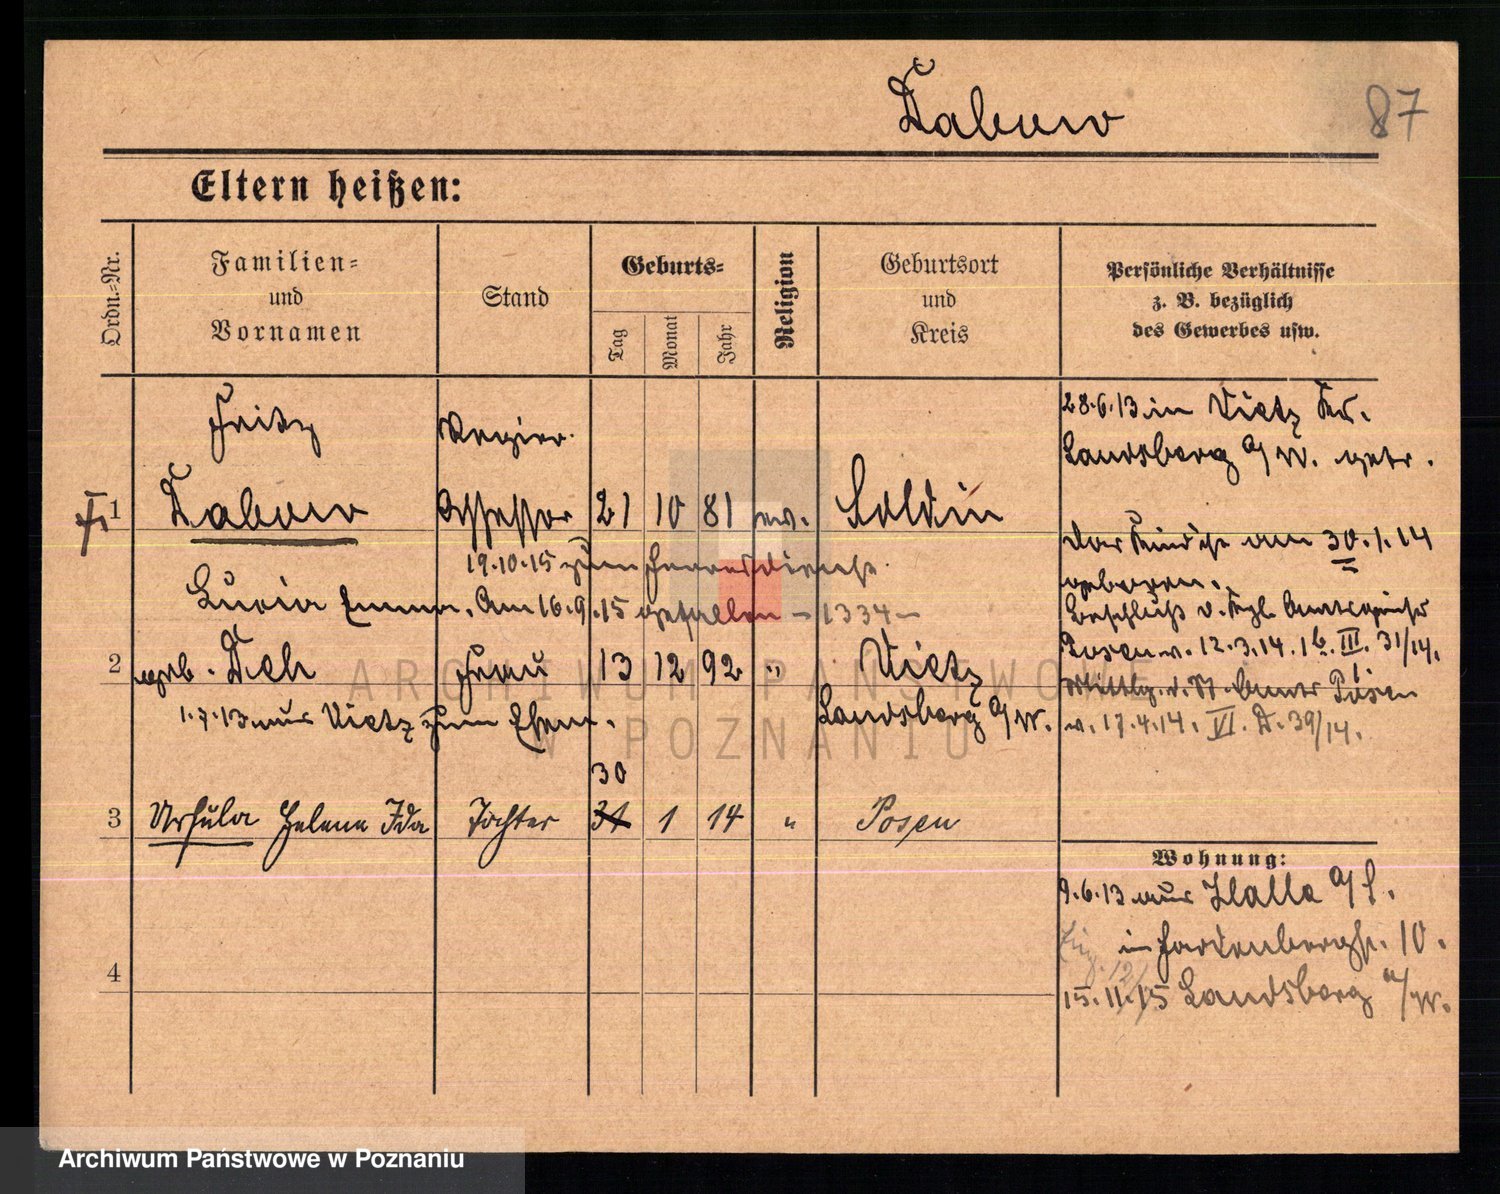 Dabuw
87
Eltern heißen:
Ordn.-Nr.
Familien-
und
Vornamen
Stand
Geburts-
Tag
Monat
Jahr
Religion
Geburtsort
und
Kreis
Persönliche Verhältnisse
z. B. bezüglich
des Gewerbes usw.
Fritz
Regier.
1
Assessor 21 10 81 ev. Soldin
28.6.13 in Vietz Kr.
Landsberg a/W. getr.
19.10.15 zum Heeresdienst
Lucia Emma. Am 16.9.15 gefallen - 1334 -
2 geb. Frau 13 12 92 " Vietz
Landsberg a/W.
1.7.13 aus Vietz zum Ehem.
Das Kind ist am 30.1.14
geboren.
Beschluß d. Kgl. Amtsgerichts
Posen v. 12.3.14. 1b. III. 31/14.
Mittlg. d. St. Amts Posen
v. 17.4.14. VI. D. 39/14.
30
3 Ursula Helene Ida Tochter 31 1 14 " Posen
Wohnung:
9.6.13 aus Halle a/S.
in Hardenbergstr. 10.
4
15.11.15 Landsberg a/W.
ARCHIWUM PAŃSTWOWE
W POZNANIU
Archiwum Państwowe w Poznaniu